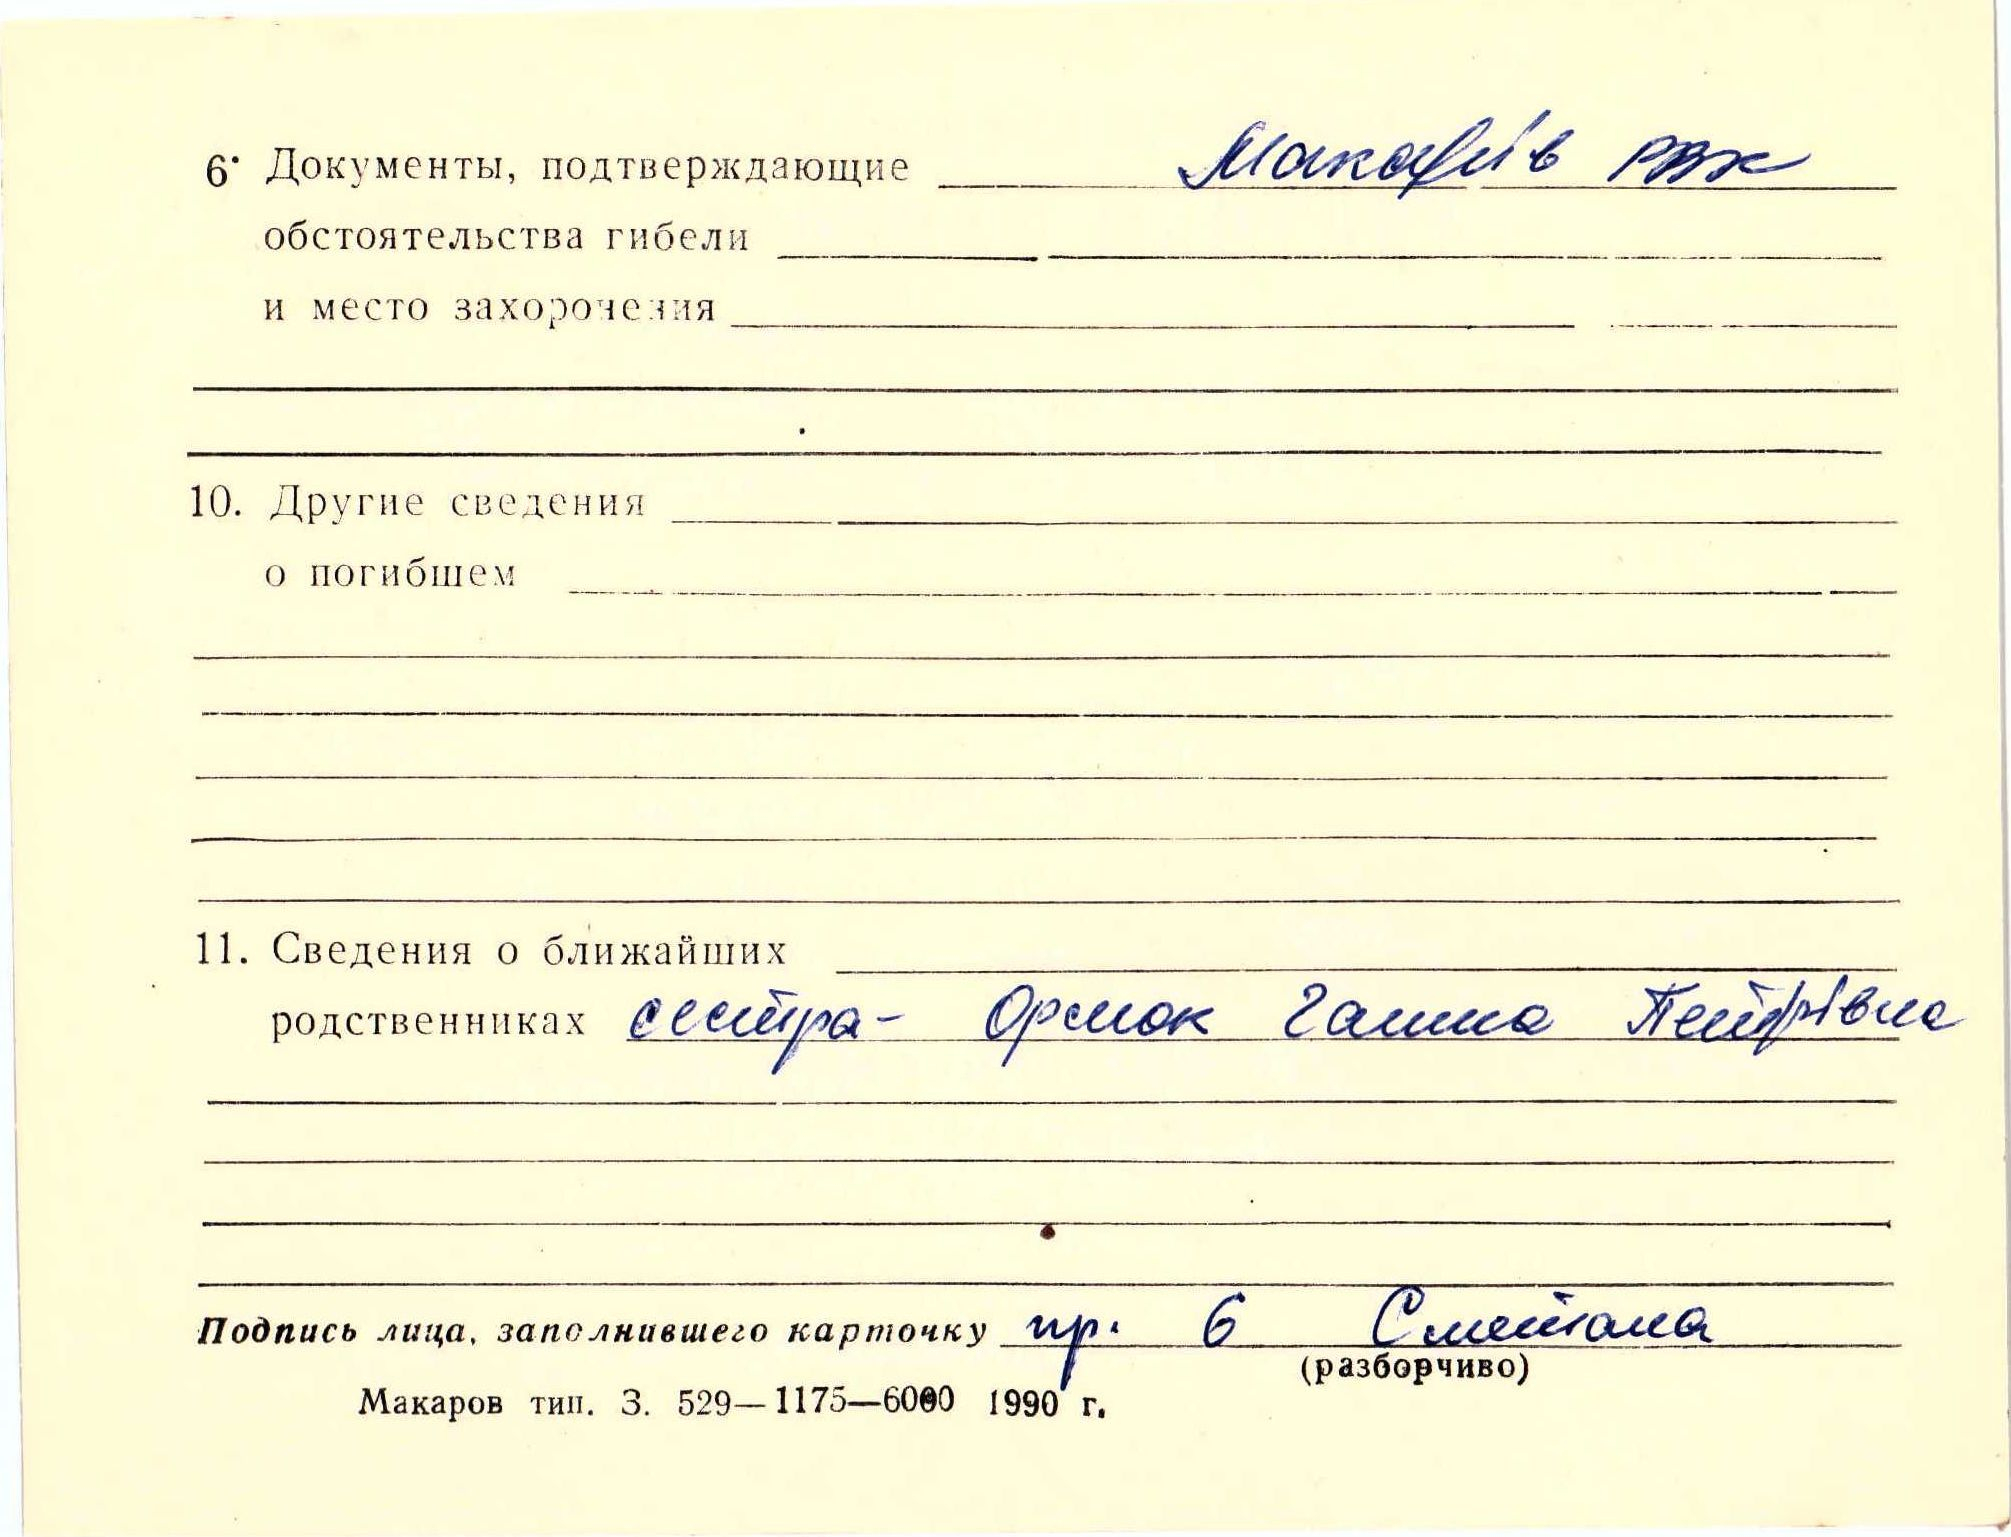 6. Документы, подтверждающие Макарів РВК
обстоятельства гибели
и место захоронения
10. Другие сведения
о погибшем
11. Сведения о ближайших
родственниках сестра - Ормок Ганна Петрівна
Подпись лица, заполнившего карточку пр. 6 Сметана
(разборчиво)
Макаров тип. З. 529—1175—6000 1990 г.